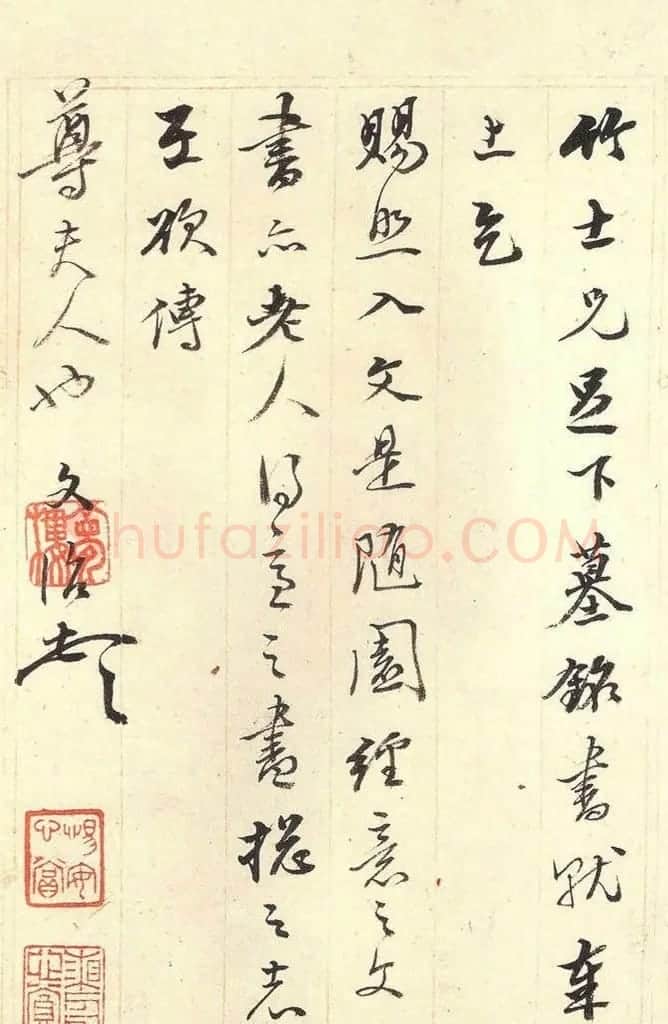 竹士兄足下墓銘書就奉
上乞
賜照入文是隨園經意之文
書亦老人得意之書
總之志
在欲傳
尊夫人也 文治
shufaziliao.COM